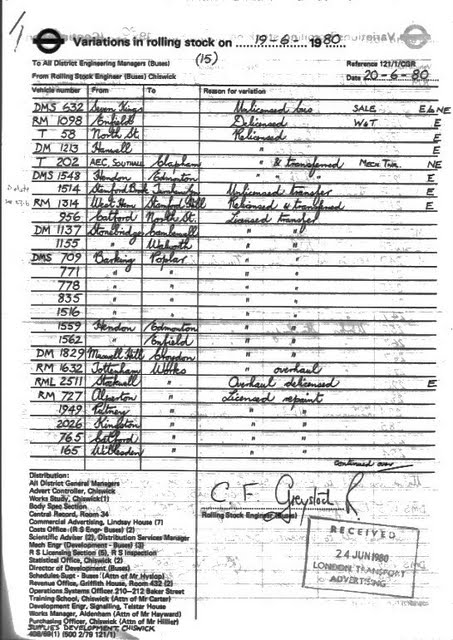 Variations in rolling stock on 19-6-1980
(15)
To All District Engineering Managers (Buses) Reference 121/1/CGR
From Rolling Stock Engineer (Buses) Chiswick Date 20-6-80
Vehicle number From To Reason for variation
DMS 632 Seven Kings Unlicensed loss SALE E&NE
RM 1098 Enfield Delicensed WOT E
T 58 North St. Relicensed E
DM 1213 Hanwell " E
T 202 AEC, SOUTHALL Clapham " & transferred MECH TRN. NE
DMS 1548 Hendon Edmonton " " " E
1514 Stamford Brook Turnham Gn Unlicensed transfer E
RM 1314 West Ham Stamford Hill Relicensed & transferred E
956 Catford North St. Licensed transfer
DM 1137 Stonebridge Camberwell " "
1155 " Walworth " "
DMS 709 Barking Poplar " "
771 " " " "
778 " " " "
835 " " " "
1516 " " " "
1559 Hendon Edmonton " "
1562 " Enfield " "
DM 1829 Muswell Hill Croydon " "
RM 1632 Tottenham Works " overhaul
RML 2511 Stockwell " Overhaul delicensed E
RM 727 Alperton " Licensed repaint
1949 Putney " " "
2026 Kingston " " "
765 Catford " " "
165 Willesden " " "
continued over
Distribution:
All District General Managers
Advert Controller, Chiswick
Works Study, Chiswick(1)
Body Spec Section
Central Record, Room 34
Commercial Advertising, Lindsey House (7)
Costs Office - (R S Engr- Buses) (2)
Scientific Adviser (2), Distribution Services Manager
Mech Engr (Development - Buses) (3)
R S Licensing Section (5), R S Inspection
Statistical Office, Chiswick (2)
Director of Development (Buses)
Schedules Supt - Buses (Attn of Mr Hyslop)
Revenue Office, Griffith House, Room 432 (2)
Operations Systems Officer, 210-212 Baker Street
Training School, Chiswick (Attn of Mr Carter)
Development Engr, Signalling, Telstar House
Works Manager, Aldenham (Attn of Mr Hayward)
Purchasing Officer, Chiswick (Attn of Mr Hillier)
SUPPLIES DEVELOPMENT, CHISWICK
408/89(1) (500 2/79 121/1)
C. F. Greystock
Rolling Stock Engineer (Buses)
RECEIVED
24 JUN 1980
LONDON TRANSPORT
ADVERTISING